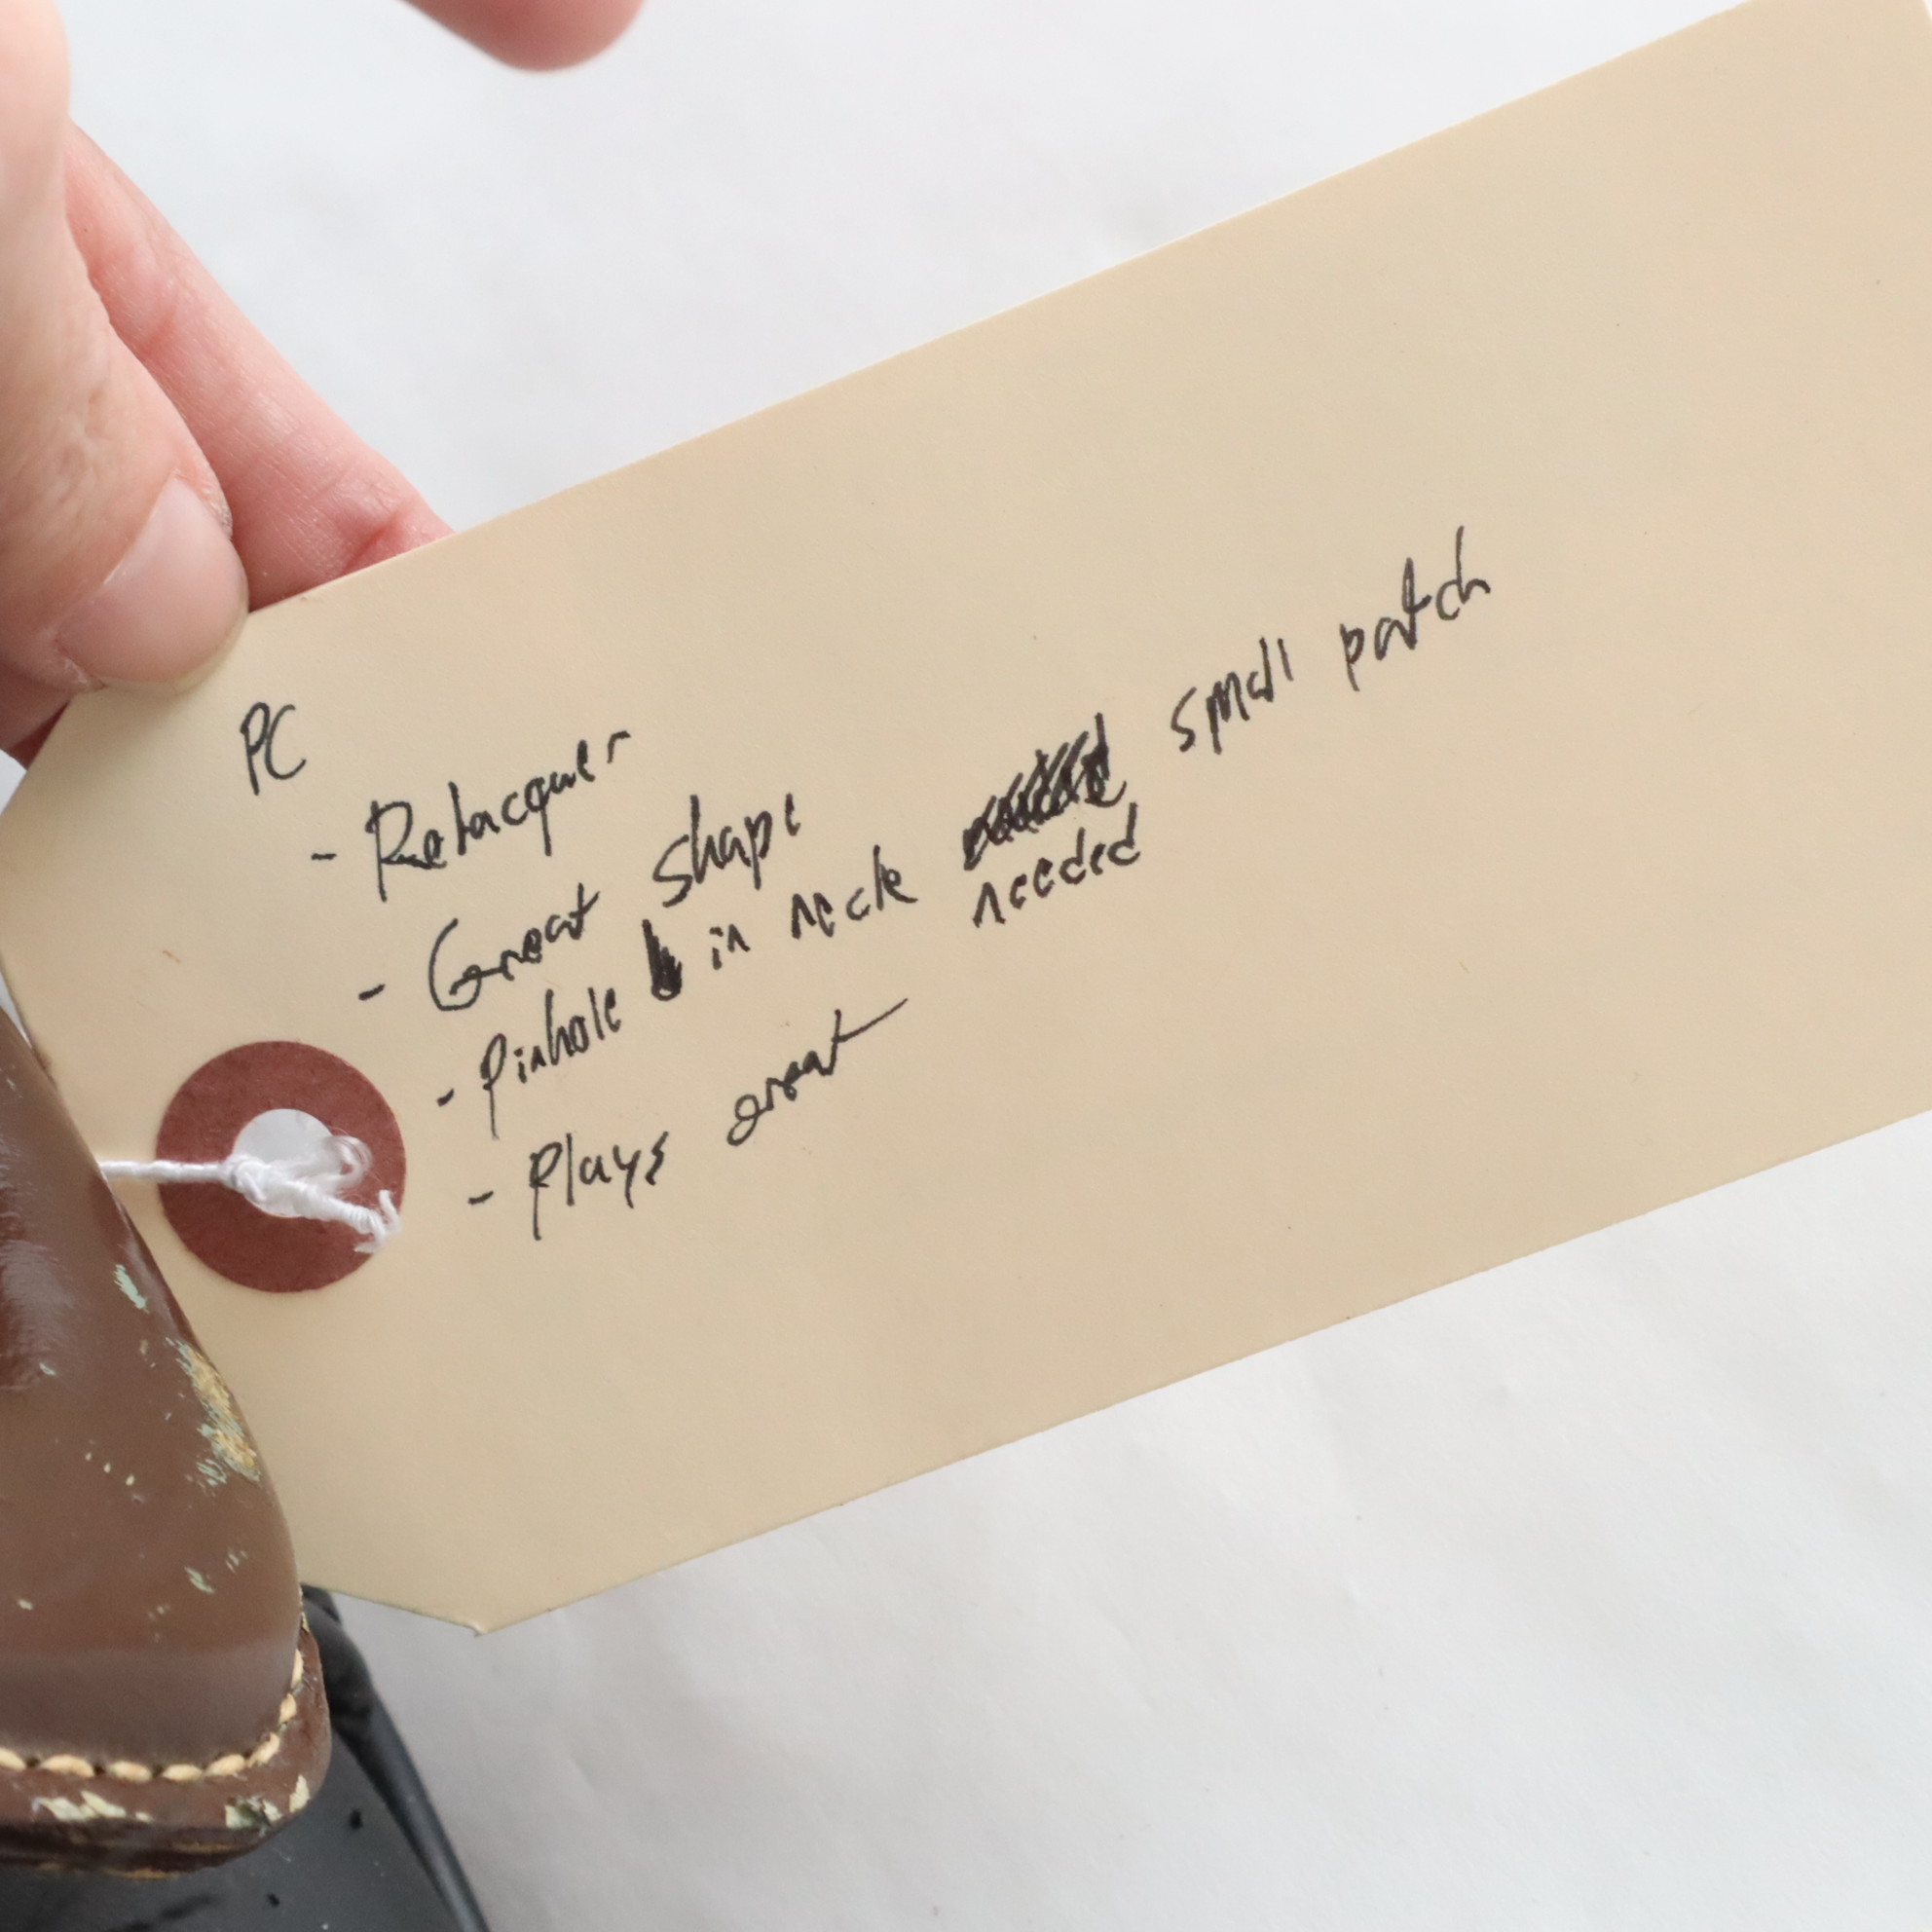 PC
- Relacquer
- Great shape
- Pinhole in neck small patch
needed
- Plays great